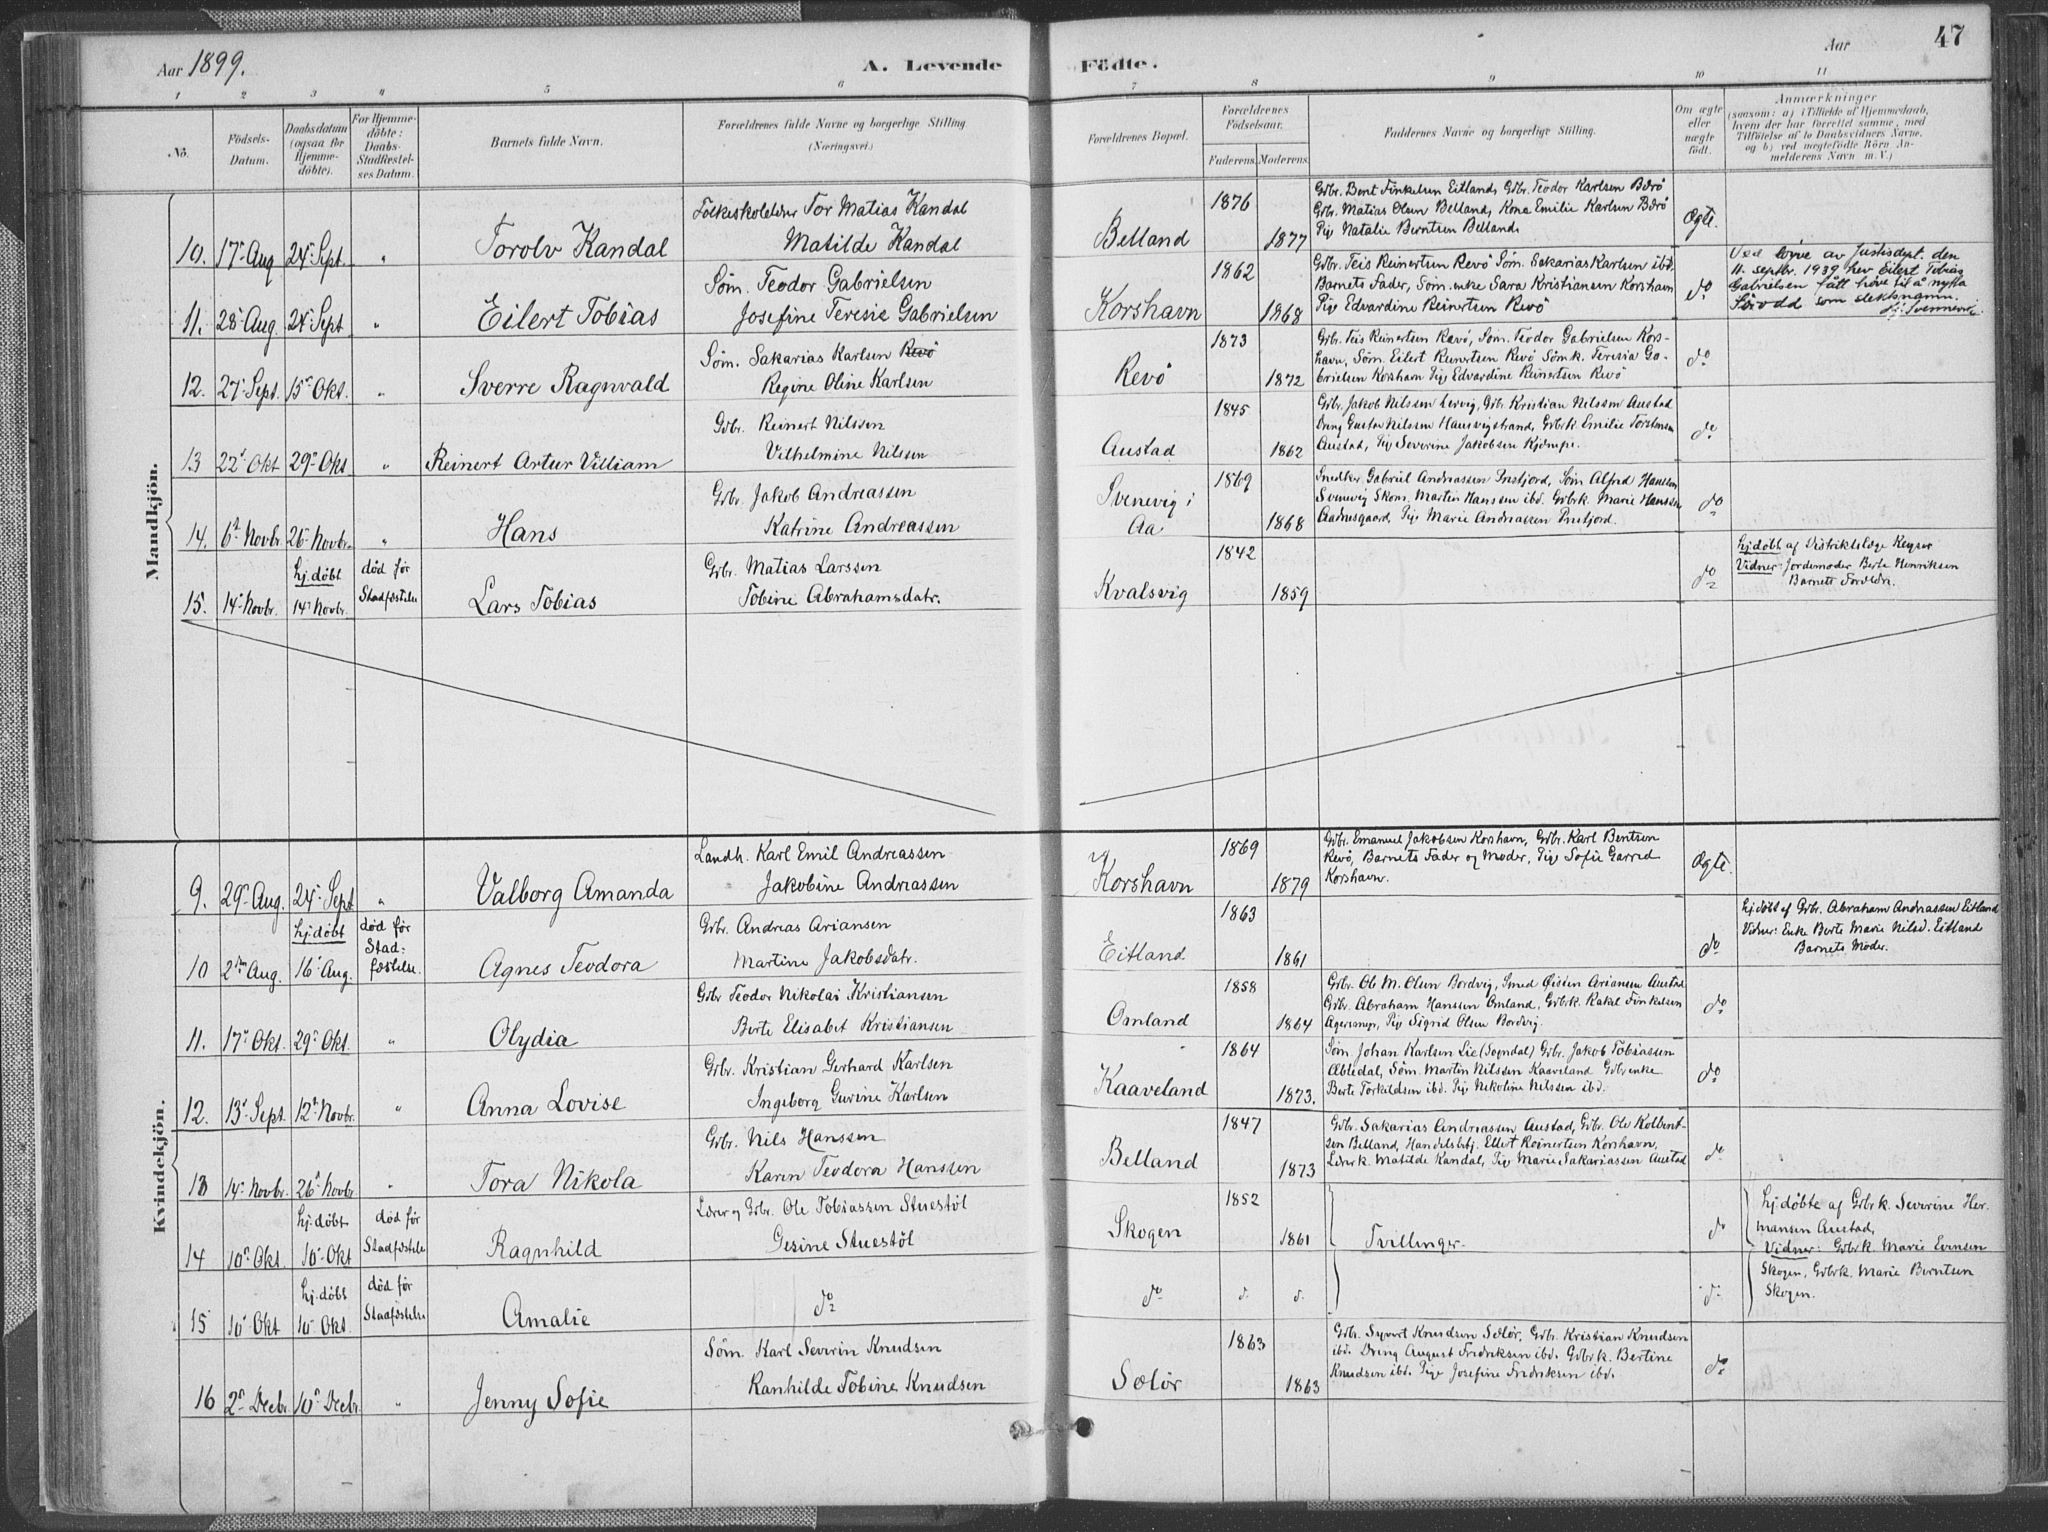 Aar 1899.
A. Levende
Födte.
Aar
47
1 2 3 4 5 6 7 8 9 10 11
No.
Födsels-Datum.
Daabsdatum (ogsaa for Hjemme-döbte).
For Hjemme-döbte: Daabs-Stadfæstel-ses Datum.
Barnets fulde Navn.
Forældrenes fulde Navne og borgerlige Stilling (Næringsvei.)
Forældrenes Bopæl.
Forældrenes Födselsaar.
Faderens. Moderens.
Faddernes Navne og borgerlige Stilling.
Om ægte eller uægte födt.
Anmærkninger
(saasom: a) i Tilfælde af Hjemmedaab,
hvem der har forrettet samme, med
Tilföielse af to Daabsvidners Navne.
og b) ved uægtefödte Börn An-
melderens Navn m. V.)
Mandkjön.
10. 17de Aug 24de Sept. " Torolv Kandal
Folkeskolelærer Tor Matias Kandal
Matilde Kandal
Belland 1876 1877
Gbr. Bent Finkelsen Eitland, Gbr. Teodor Karlsen Bærø
Gbr. Matias Olsen Belland, Kone Emilie Karlsen Bærø
Pige Natalie Berntsen Belland.
Ægte.
11. 28de Aug. 24de Sept " Eilert Tobias
Søm. Teodor Gabrielsen
Josefine Teresie Gabrielsen
Korshavn 1862 1868
Gbr. Teis Reinertsen Revö Søm. Sakarias Karlsen ibd.
Barnets Fader, Søm. enke Sara Kristiansen Korshavn
Pige Edvardine Reinertsen Revö
do
Ved löyve av Justisdept. den
11. septbr. 1939 hev Eilert Tobias
Gabrielsen fått höve til å nytta
Sörodd som slektsnamn.
12. 27de Sept. 15de Okt. " Sverre Ragnvald
Søm. Sakarias Karlsen Revö
Regine Oline Karlsen
Revö 1873 1872
Gbr. Teis Reinertsen Revö, Søm. Teodor Gabrielsen Kors-
havn, Søm. Eilert Reinertsen Revö Sömk. Teresia Ga-
brielsen Korshavn Pige Edvardine Reinertsen Revö
do
13 22de Okt 29de Okt " Reinert Artur Villiam
Gbr. Reinert Nilssen
Vilhelmine Nilssen
Austad 1845 1862
Gbr. Jakob Nilssen Lervig, Gbr. Kristian Nilssen Austad
Dreng Gustav Nilssen Hausvigstrand, Gbrk Emilie Torstensen
Austad, Pige Severine Jakobsen Kjempe.
do
14. 6te Novbr 26de Novbr. " Hans
Gbr. Jakob Andreassen
Katrine Andreassen
Svenevig i
Aa 1869 1868
Snedker Gabriel Andreassen Prestjord, Søm Alfred Hanssen
Svenevig Skom. Martin Hanssen ibd. Gbrk. Marie Hanssen
Aadnesgaard, Pige Marie Andreassen Prestjord.
do
15. 14de Novbr. hj. døbt 14de Novbr. død før Stadfæstelse Lars Tobias
Gbr. Matias Larssen
Tobine Abrahamsdatr.
Kvalsvig 1842 1859
do
hj. døbt af Distriktslæge Keyser
Vidner: Jordemoder Berte Henriksen
Barnets Forældre.
Kvindekjön.
9. 29de Aug. 24de Sept " Valborg Amanda
Landh. Karl Emil Andreassen
Jakobine Andreassen
Korshavn 1869 1879
Gbr. Emanuel Jakobsen Korshavn, Gbr. Karl Bentsen
Revö, Barnets Fader og Moder, Pige Sofie Garred
Korshavn.
Ægte.
10 2den Aug. hj. døbt 16de Aug. død før Stad-fæstelse. Agnes Teodora
Gbr. Andreas Ariansen
Martine Jakobsdatr.
Eitland 1863 1861
do
hj. døbt af Gbr. Abraham Andreassen Eitland
Vidner: Enke Berte Marie Nilsd. Eitland
Barnets Moder.
11. 17de Okt. 29de Okt. " Olydia
Gbr Teodor Nikolai Kristiansen
Berte Elisabet Kristiansen
Omland 1858 1864
Gbr. Ole M. Olsen Bordvig, Smed Øisten Ariansen Austad
Gbr. Abraham Hanssen Omland, Gbrk. Rakel Finkelsen
Pige Sigrid Olsen Bordvig.
do
12. 13de Sept. 12te Novbr. " Anna Lovise
Gbr. Kristian Gerhard Karlsen
Ingeborg Gurine Karlsen
Kaaveland 1864 1873.
Søm. Johan Karlsen Lie (Sogndal) Gbr. Jakob Tobiassen
Æbledal, Søm. Martin Nilssen Kaaveland Gbr enke
Berte Torkildsen ibd. Pige Nikoline Nilssen ibd.
do
13 14de Novbr. 26de Novbr " Tora Nikola
Gbr. Nils Hanssen
Karen Teodora Hanssen
Belland 1847 1873
Gbr. Sakarias Andreassen Austad, Gbr. Ole Kolbent-
sen Belland, Handelsbetj. Eilert Reinertsen Korshavn,
Lærerk. Matilde Kandal, Pige Marie Sakariassen Austad
do
14 10de Okt. hj. døbt 10de Okt død før Stadfæstelse Ragnhild
Lærer og Gbr. Ole Tobiassen Stuestöl
Gesine Stuestöl
Skogen 1852 1861
Tvillinger.
do
hj. døbte af Gbrk. Severine Her-
mansen Austad,
Vidner: Gbrk. Marie Evensen
Skogen, Gbrk. Marie Berntsen
Skogen.
15 10de Okt hj. døbt 10de Okt. død før Staafæstelse Amalie
do
do d. d. do
16 2den Decbr. 10de Decbr. " Jenny Sofie
Søm. Karl Severin Knudsen
Ranhilde Tobine Knudsen
Sælør 1863 1863
Gbr. Syvert Knudsen Sælør, Gbr. Kristian Knudsen
ibd. Dreng August Fredriksen ibd. Gbrk. Bertine
Knudsen ibd. Pige Josefine Fredriksen ibd.
do